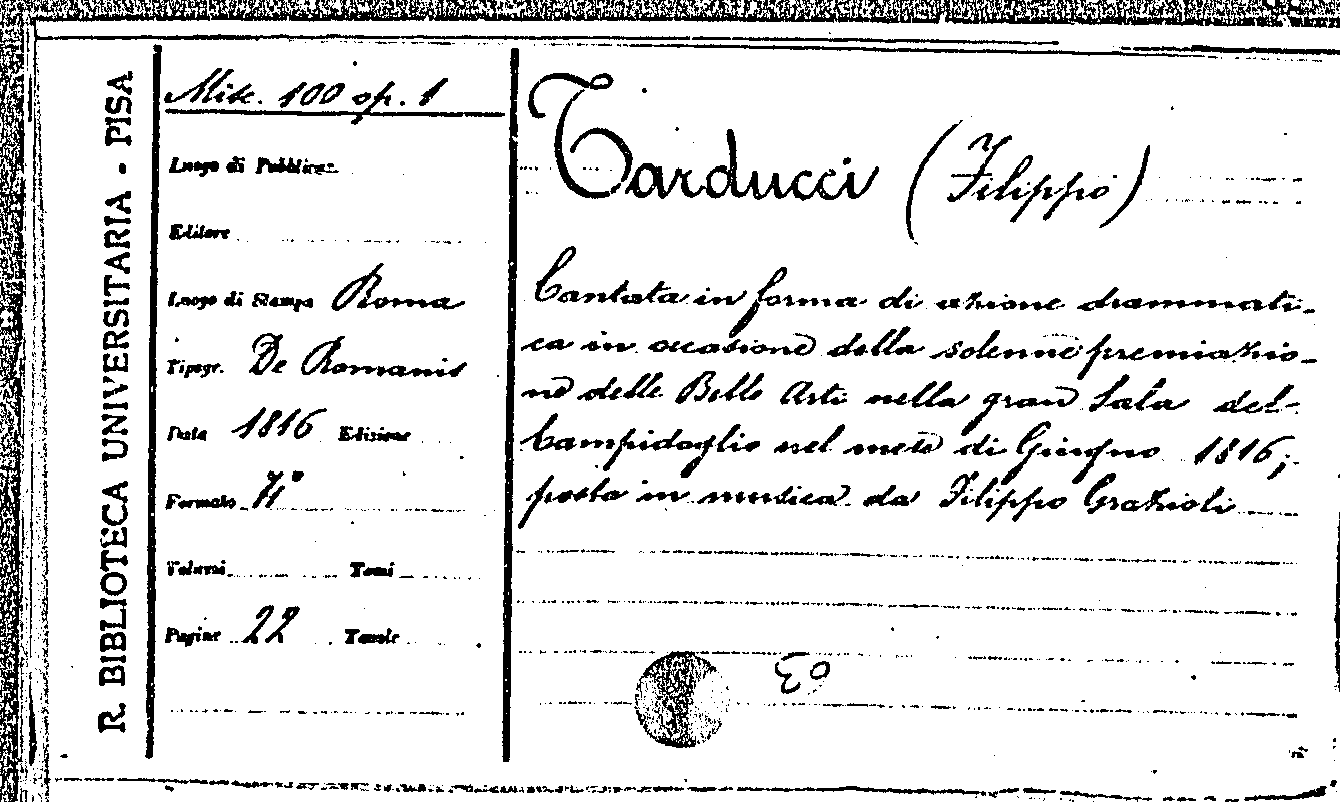 R. BIBLIOTECA UNIVERSITARIA - PISA
Misc. 100 op. 1
Luogo di Pubblicaz.
Editore
Luogo di Stampa Roma
Tipogr. De Romanis
Data 1816 Edizione
Formato 4°
Volumi Tomi
Pagine 22 Tavole
Tarducci (Filippo)
Cantata in forma di azione drammati-
ca in occasione della solenne premiazio-
ne delle Belle Arti nella gran Sala del
Campidoglio nel mese di Giugno 1816;
posta in musica da Filippo Grazioli